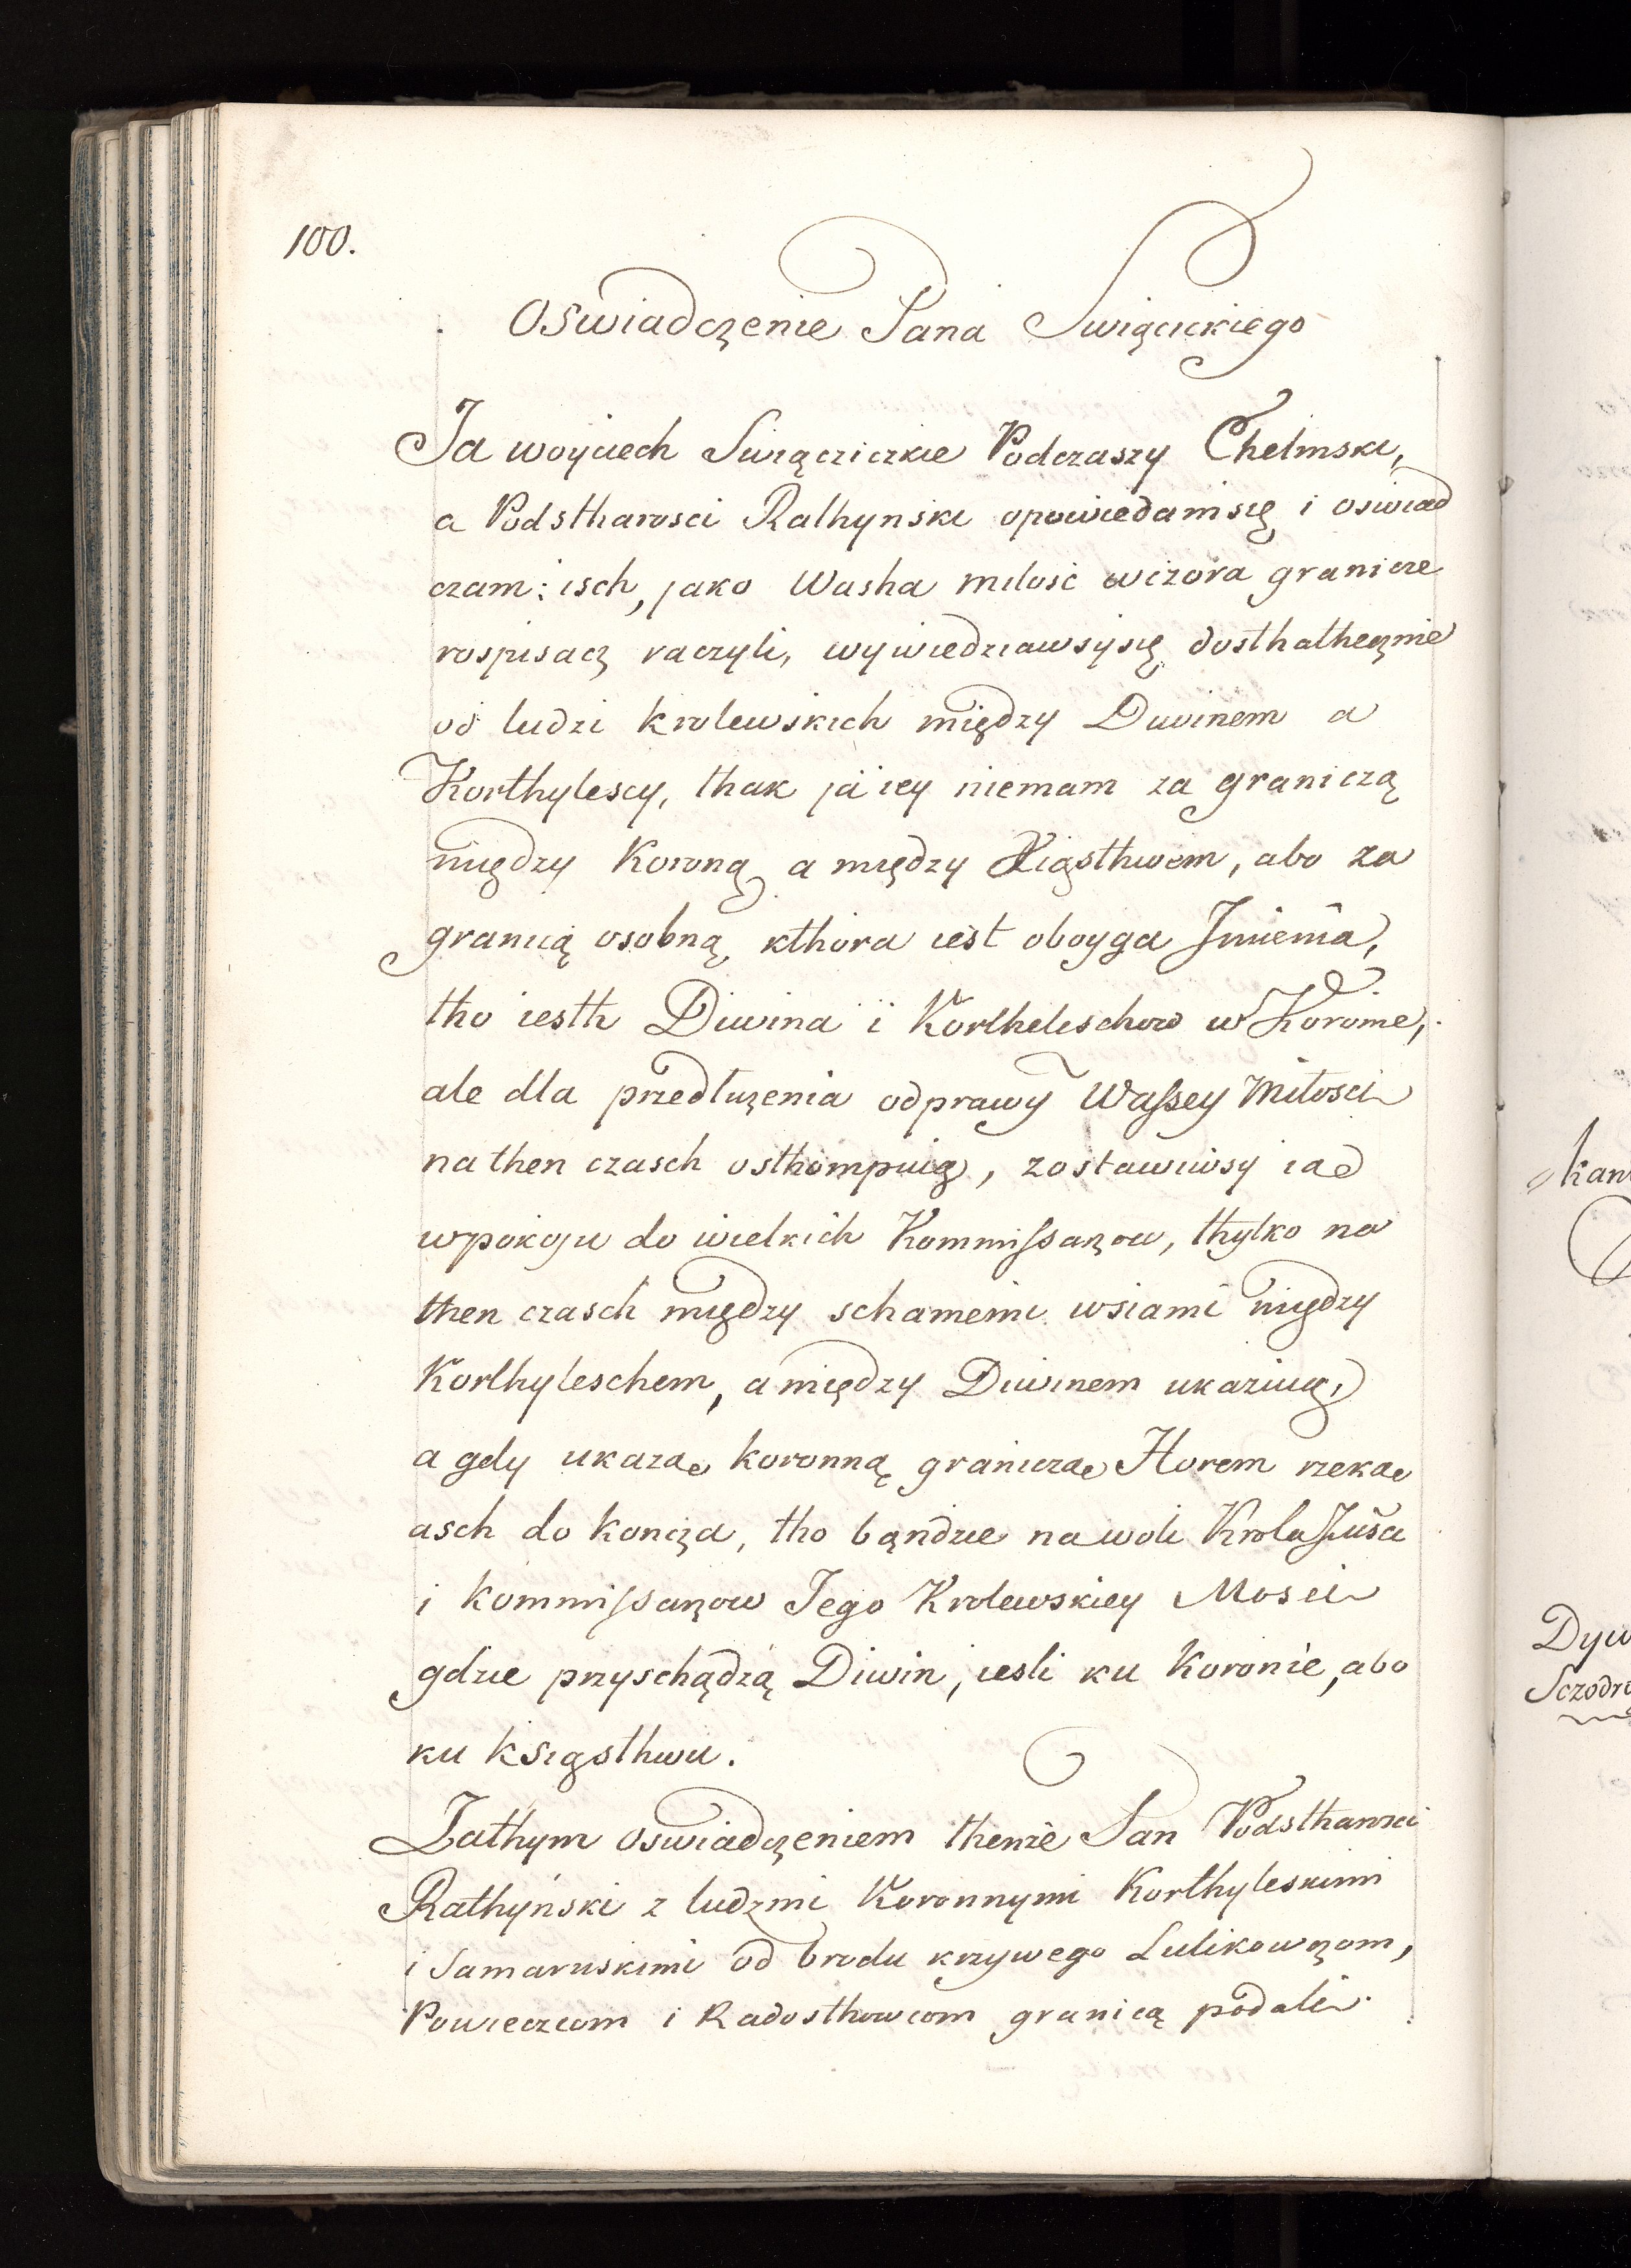 100.
Oswiadczenie Pana Swiącickiego
Ja woyciech Swiącziczkie Podczaszy Chelmski,
a Podstharosci Rathynski opowiedamsię i oswiad
czam: isch, jako Washa milosć wczora granicze
rospisacz raczyli, wywiedziawsysię dosthathecznie
od ludzi krolewskich między Diwinem a
Korthylescy, thak ja iey niemam za graniczą
między Koroną a między Xięsthwem, abo za
granicą osobną, kthora iest oboyga Jmienia,
tho iesth Diwina i Kortheleschow w Koronie,
ale dla przedłuzenia odprawy Wassey Miłosci
na then czasch osthompuię, zostawiwsy iae
wpokoju do wielkich Kommissarzow, thylko na
then czasch między schamemi wsiami między
Korthyleschem, a między Diwinem ukazuię,
a gdy ukazae koronną graniczae Horem rzekae
asch do koncza, tho bąndzie na woli Krola
i kommissarzow Jego Krolewskiey Mosci
gdzie przyschądzą Diwin, iesli ku Koronie, abo
ku księsthwu.
Zathym oswiadczeniem thenże Pan Podstharosci
Rathyński z ludzmi Koronnymi Korthyleskimi
i Samaruskimi od brodu krzywego Lulikowczom,
Powieczcom i Radosthowcom granicą podali.
kan
Dyw
Sczodro